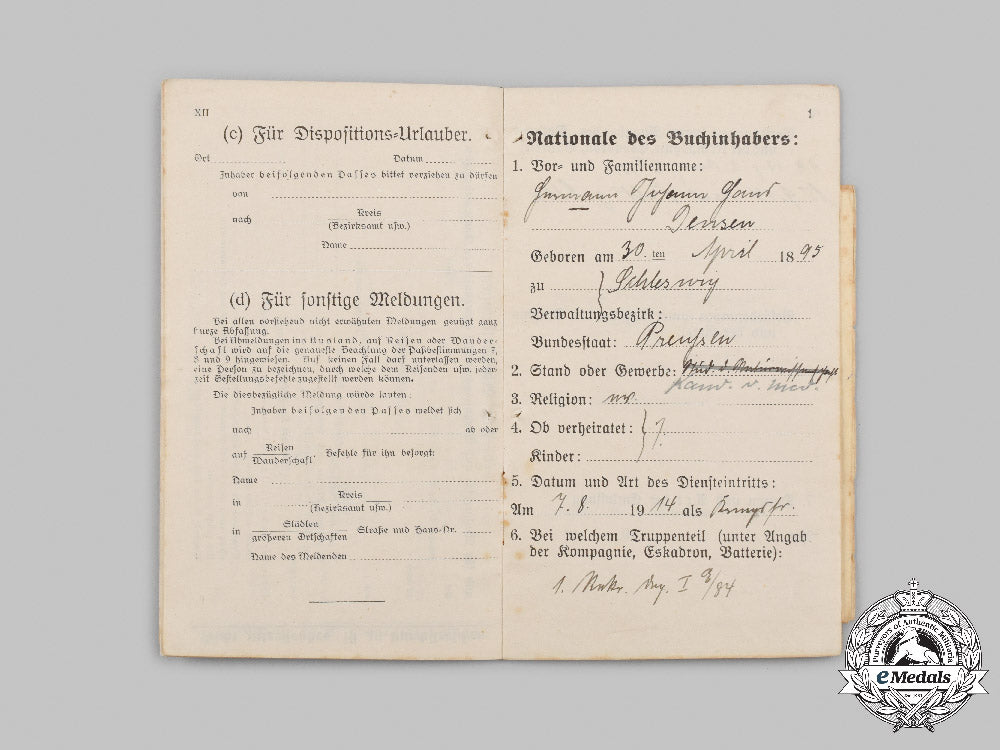 XII
(c) Für Dispositions-Urlauber.
Ort Datum
Inhaber beifolgenden Passes bittet verziehen zu dürfen
von
nach Kreis
(Bezirksamt usw.)
Name
(d) Für sonstige Meldungen.
Bei allen vorstehend nicht erwähnten Meldungen genügt ganz
kurze Abfassung.
Bei Abmeldungen ins Ausland, auf Reisen oder Wander-
schaft wird auf die genaueste Beachtung der Paßbestimmungen 7,
8 und 9 hingewiesen. Auf keinen Fall darf unterlassen werden,
eine Person zu bezeichnen, durch welche dem Reisenden usw. jeder-
zeit Gestellungsbefehle zugestellt werden können.
Die diesbezügliche Meldung würde lauten:
Inhaber beifolgenden Passes meldet sich
nach ab oder
auf Reisen
Wanderschaft. Befehle für ihn besorgt:
Name
in Kreis
(Bezirksamt usw.)
in Städten
größeren Ortschaften Straße und Haus-Nr.
Name des Meldenden
1
Nationale des Buchinhabers:
1. Vor- und Familienname:
Hermann Johann Hans
Jensen
Geboren am 30. ten April 1895
zu Schleswig
Verwaltungsbezirk:
Bundesstaat: Preußen
2. Stand oder Gewerbe:
Kand. d. med.
3. Religion: ev.
4. Ob verheiratet:
Kinder:
5. Datum und Art des Diensteintritts:
Am 7. 8. 1914 als Kriegsfr.
6. Bei welchem Truppenteil (unter Angab
der Kompagnie, Eskadron, Batterie):
1. Rekr. Dep. I E/84
Purveyors of Authentic Militaria
eMedals